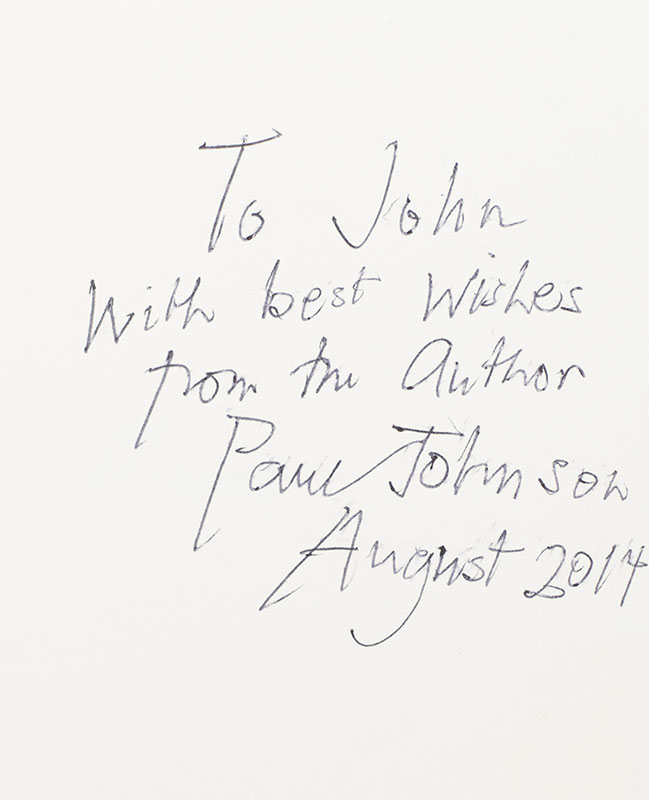 To John
With best Wishes
from the Author
Paul Johnson
August 2014